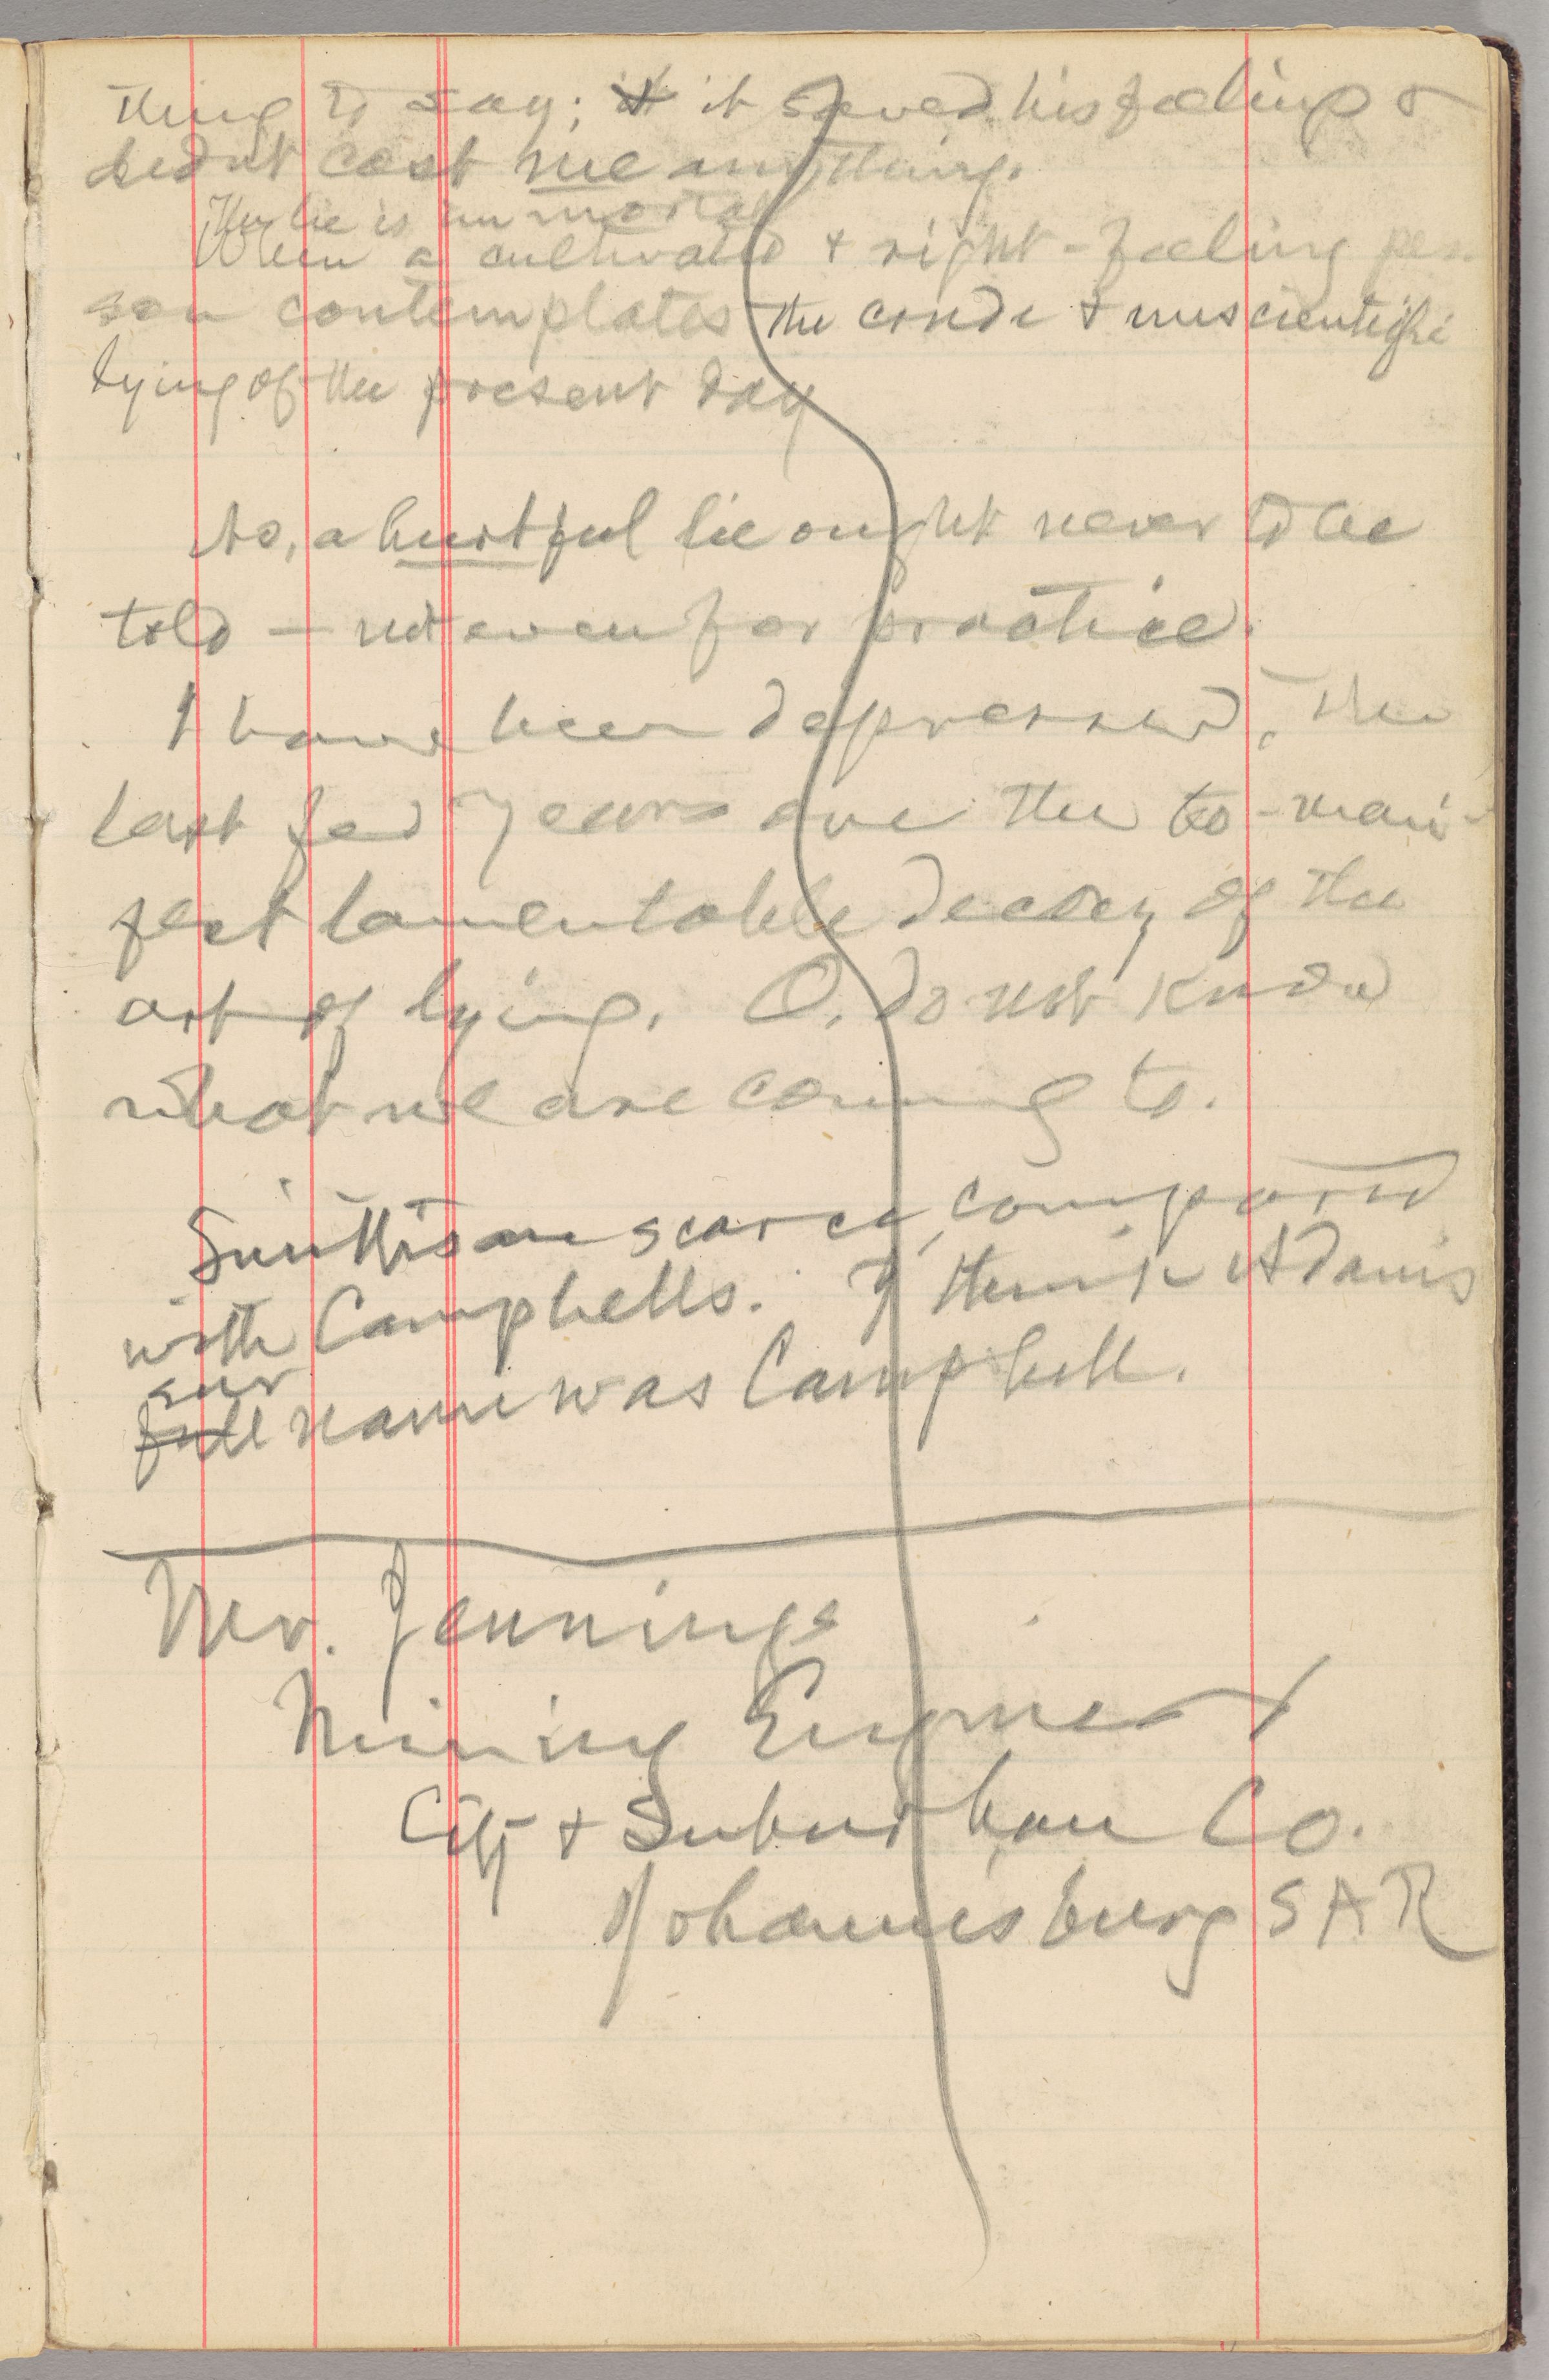 thing to say; it saved his feelings &
didn't cost me anything.
The lie is immortal
When a cultivated & right-feeling per-
son contemplates the crude & unscientific
lying of the present day
No, a hurtful lie ought never to be
told — not even for practice.
I have been depressed, the
last few years over the too-mani-
fest lamentable decay of the
art of lying. O, do not know
what we are coming to.
Smiths are scarce, compared
with Campbells. I think Adam's
sur
full name was Campbell.
Mr. Jennings
Mining Engineer
City & Suburban Co.
Johannisburg SAR